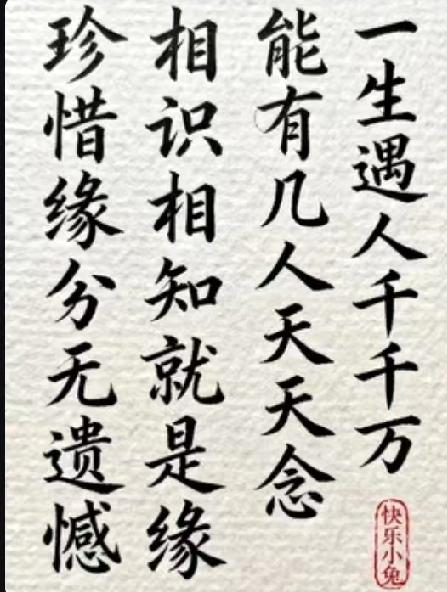 一生遇人千千万
能有几人天天念
相识相知就是缘
珍惜缘分无遗憾
快乐小兔